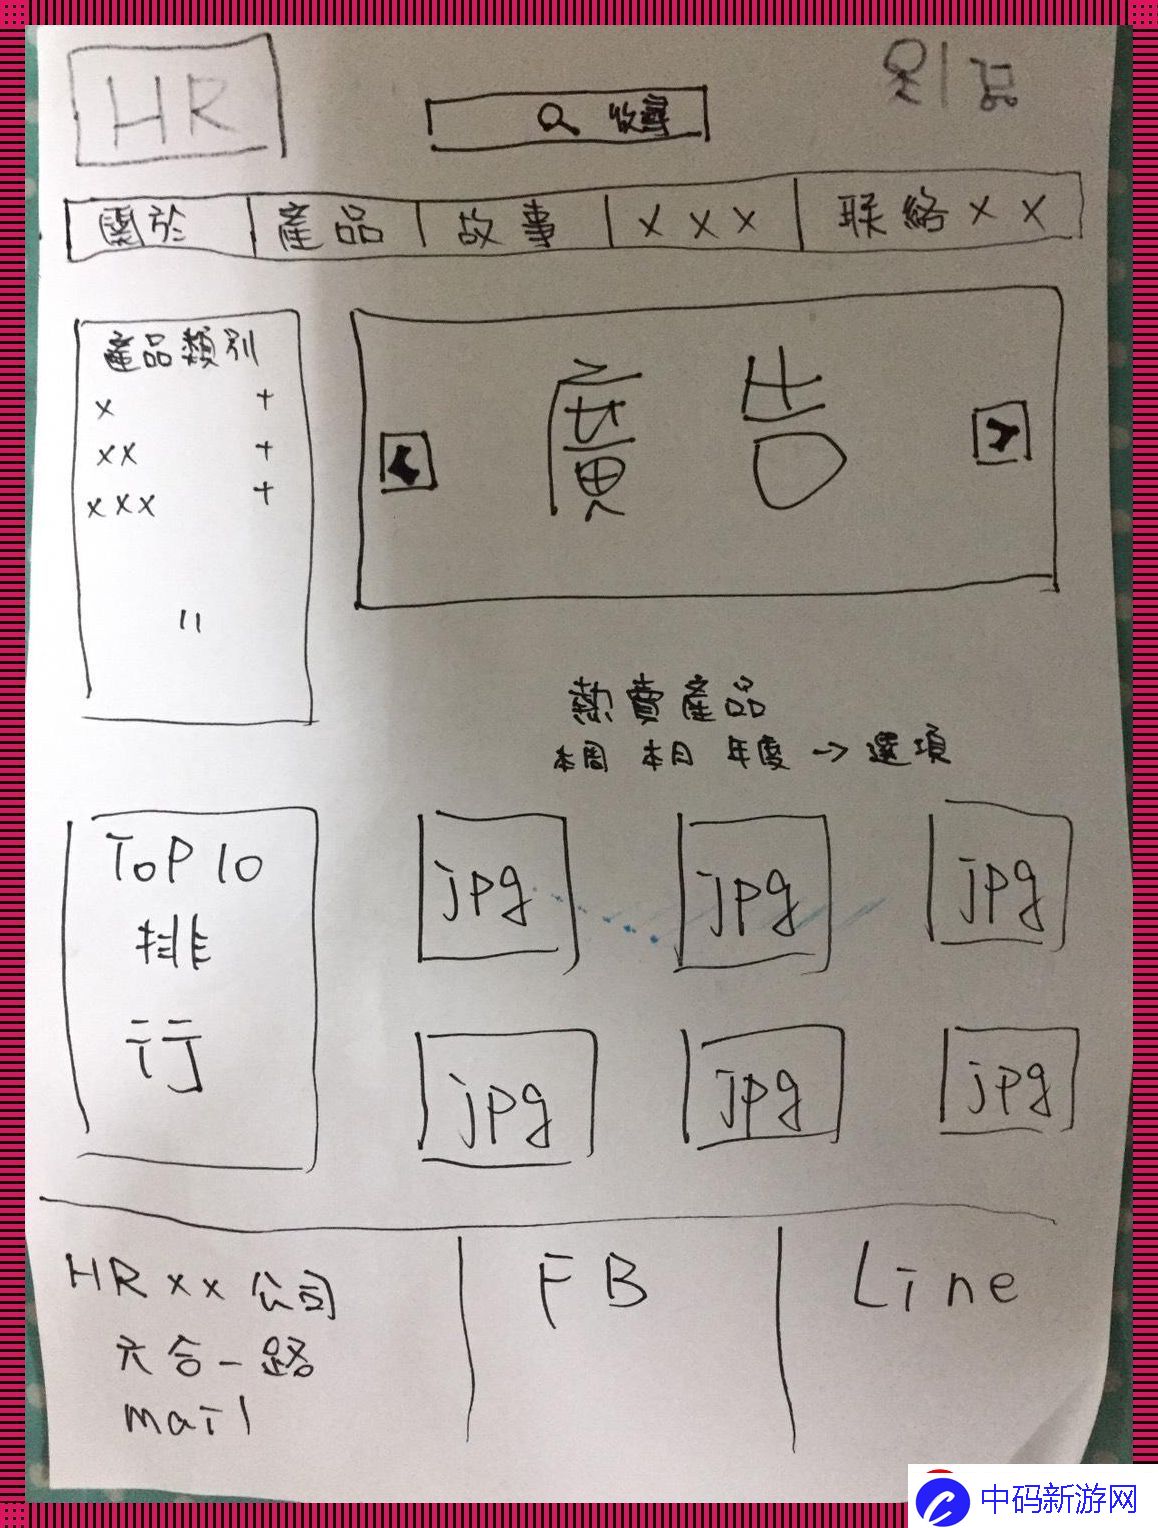 HR
收尋
關於 產品 故事 xxx 联絡xx
產品類別
x +
xx +
xxx +
廣告
熱賣產品
本周 本月 年度 → 選項
TOP 10
排
行
jpg jpg jpg
jpg jpg jpg
HR xx 公司
六合一路
mail
FB
Line
中码新游网